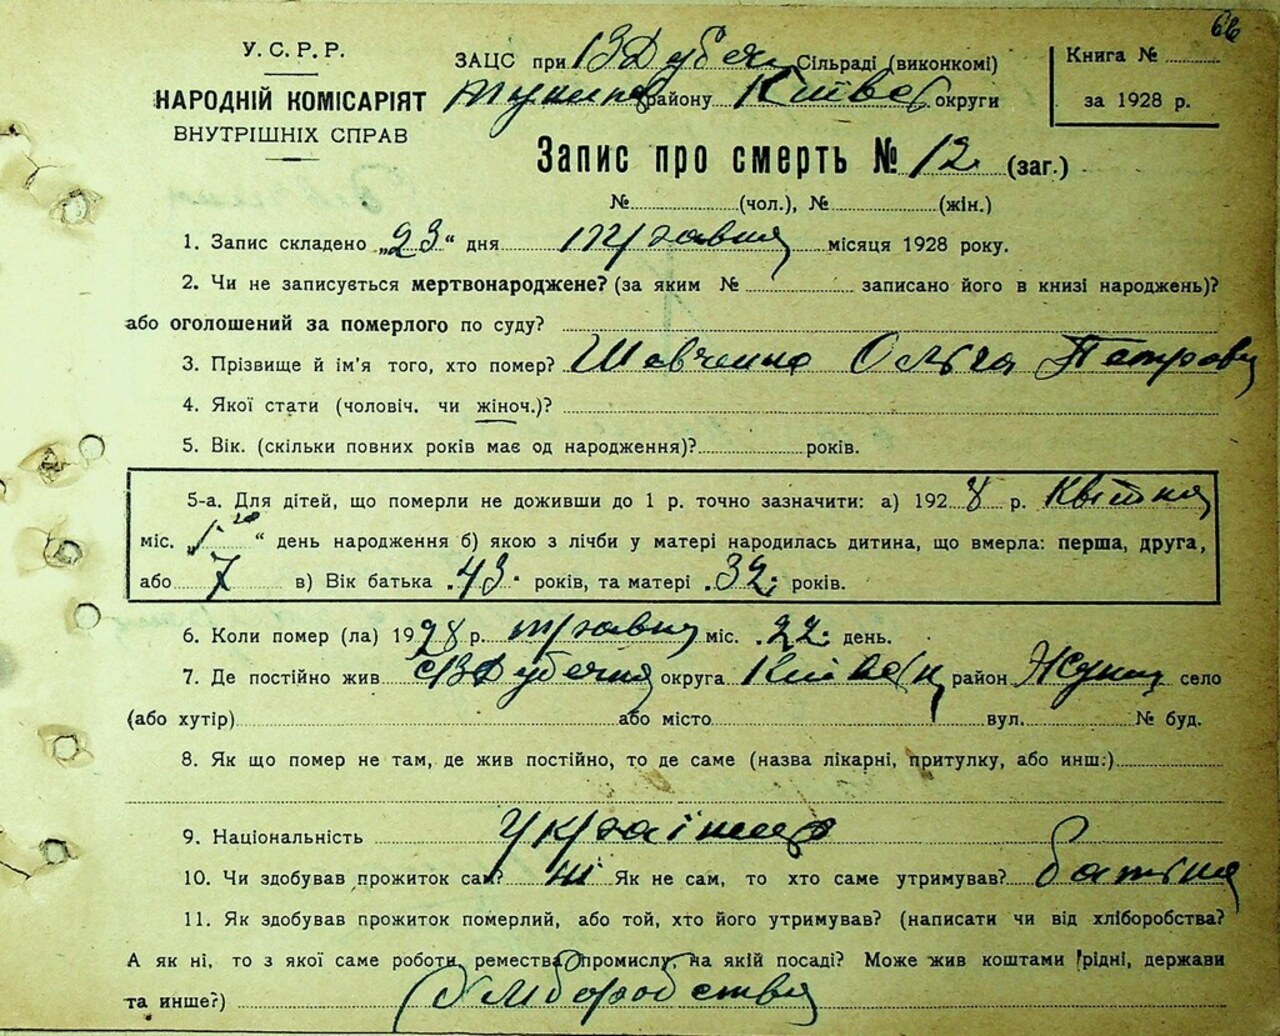 66
У.С.Р.Р.
НАРОДНІЙ КОМІСАРІЯТ
ВНУТРІШНІХ СПРАВ
ЗАЦС при Сільраді (виконкомі)
району Київск округи
Книга №
за 1928 р.
Запис про смерть № 12 (заг.)
№ (чол.), № (жін.)
1. Запис складено „23“ дня травня місяця 1928 року.
2. Чи не записується мертвонароджене? (за яким № записано його в книзі народжень)?
або оголошений за померлого по суду?
3. Прізвище й ім'я того, хто помер? Шевченко Ольга Петровн
4. Якої стати (чоловіч. чи жіноч.)?
5. Вік. (скільки повних років має од народження)? років.
5-а. Для дітей, що померли не доживши до 1 р. точно зазначити: а) 1928 р. Квітня
міс. „ “ день народження б) якою з лічби у матері народилась дитина, що вмерла: перша, друга,
або 7 в) Вік батька 43 років, та матері 32 років.
6. Коли помер (ла) 1928 р. травня міс. 22 день.
7. Де постійно жив округа Київск район село
(або хутір) або місто вул. № буд.
8. Як що помер не там, де жив постійно, то де саме (назва лікарні, притулку, або инш.)
9. Національність
10. Чи здобував прожиток сам? ні Як не сам, то хто саме утримував? батько
11. Як здобував прожиток померлий, або той, хто його утримував? (написати чи від хліборобства?
А як ні, то з якої саме роботи, ремества, промислу, на якій посаді? Може жив коштами рідні, держави
та инше?) Хліборобства